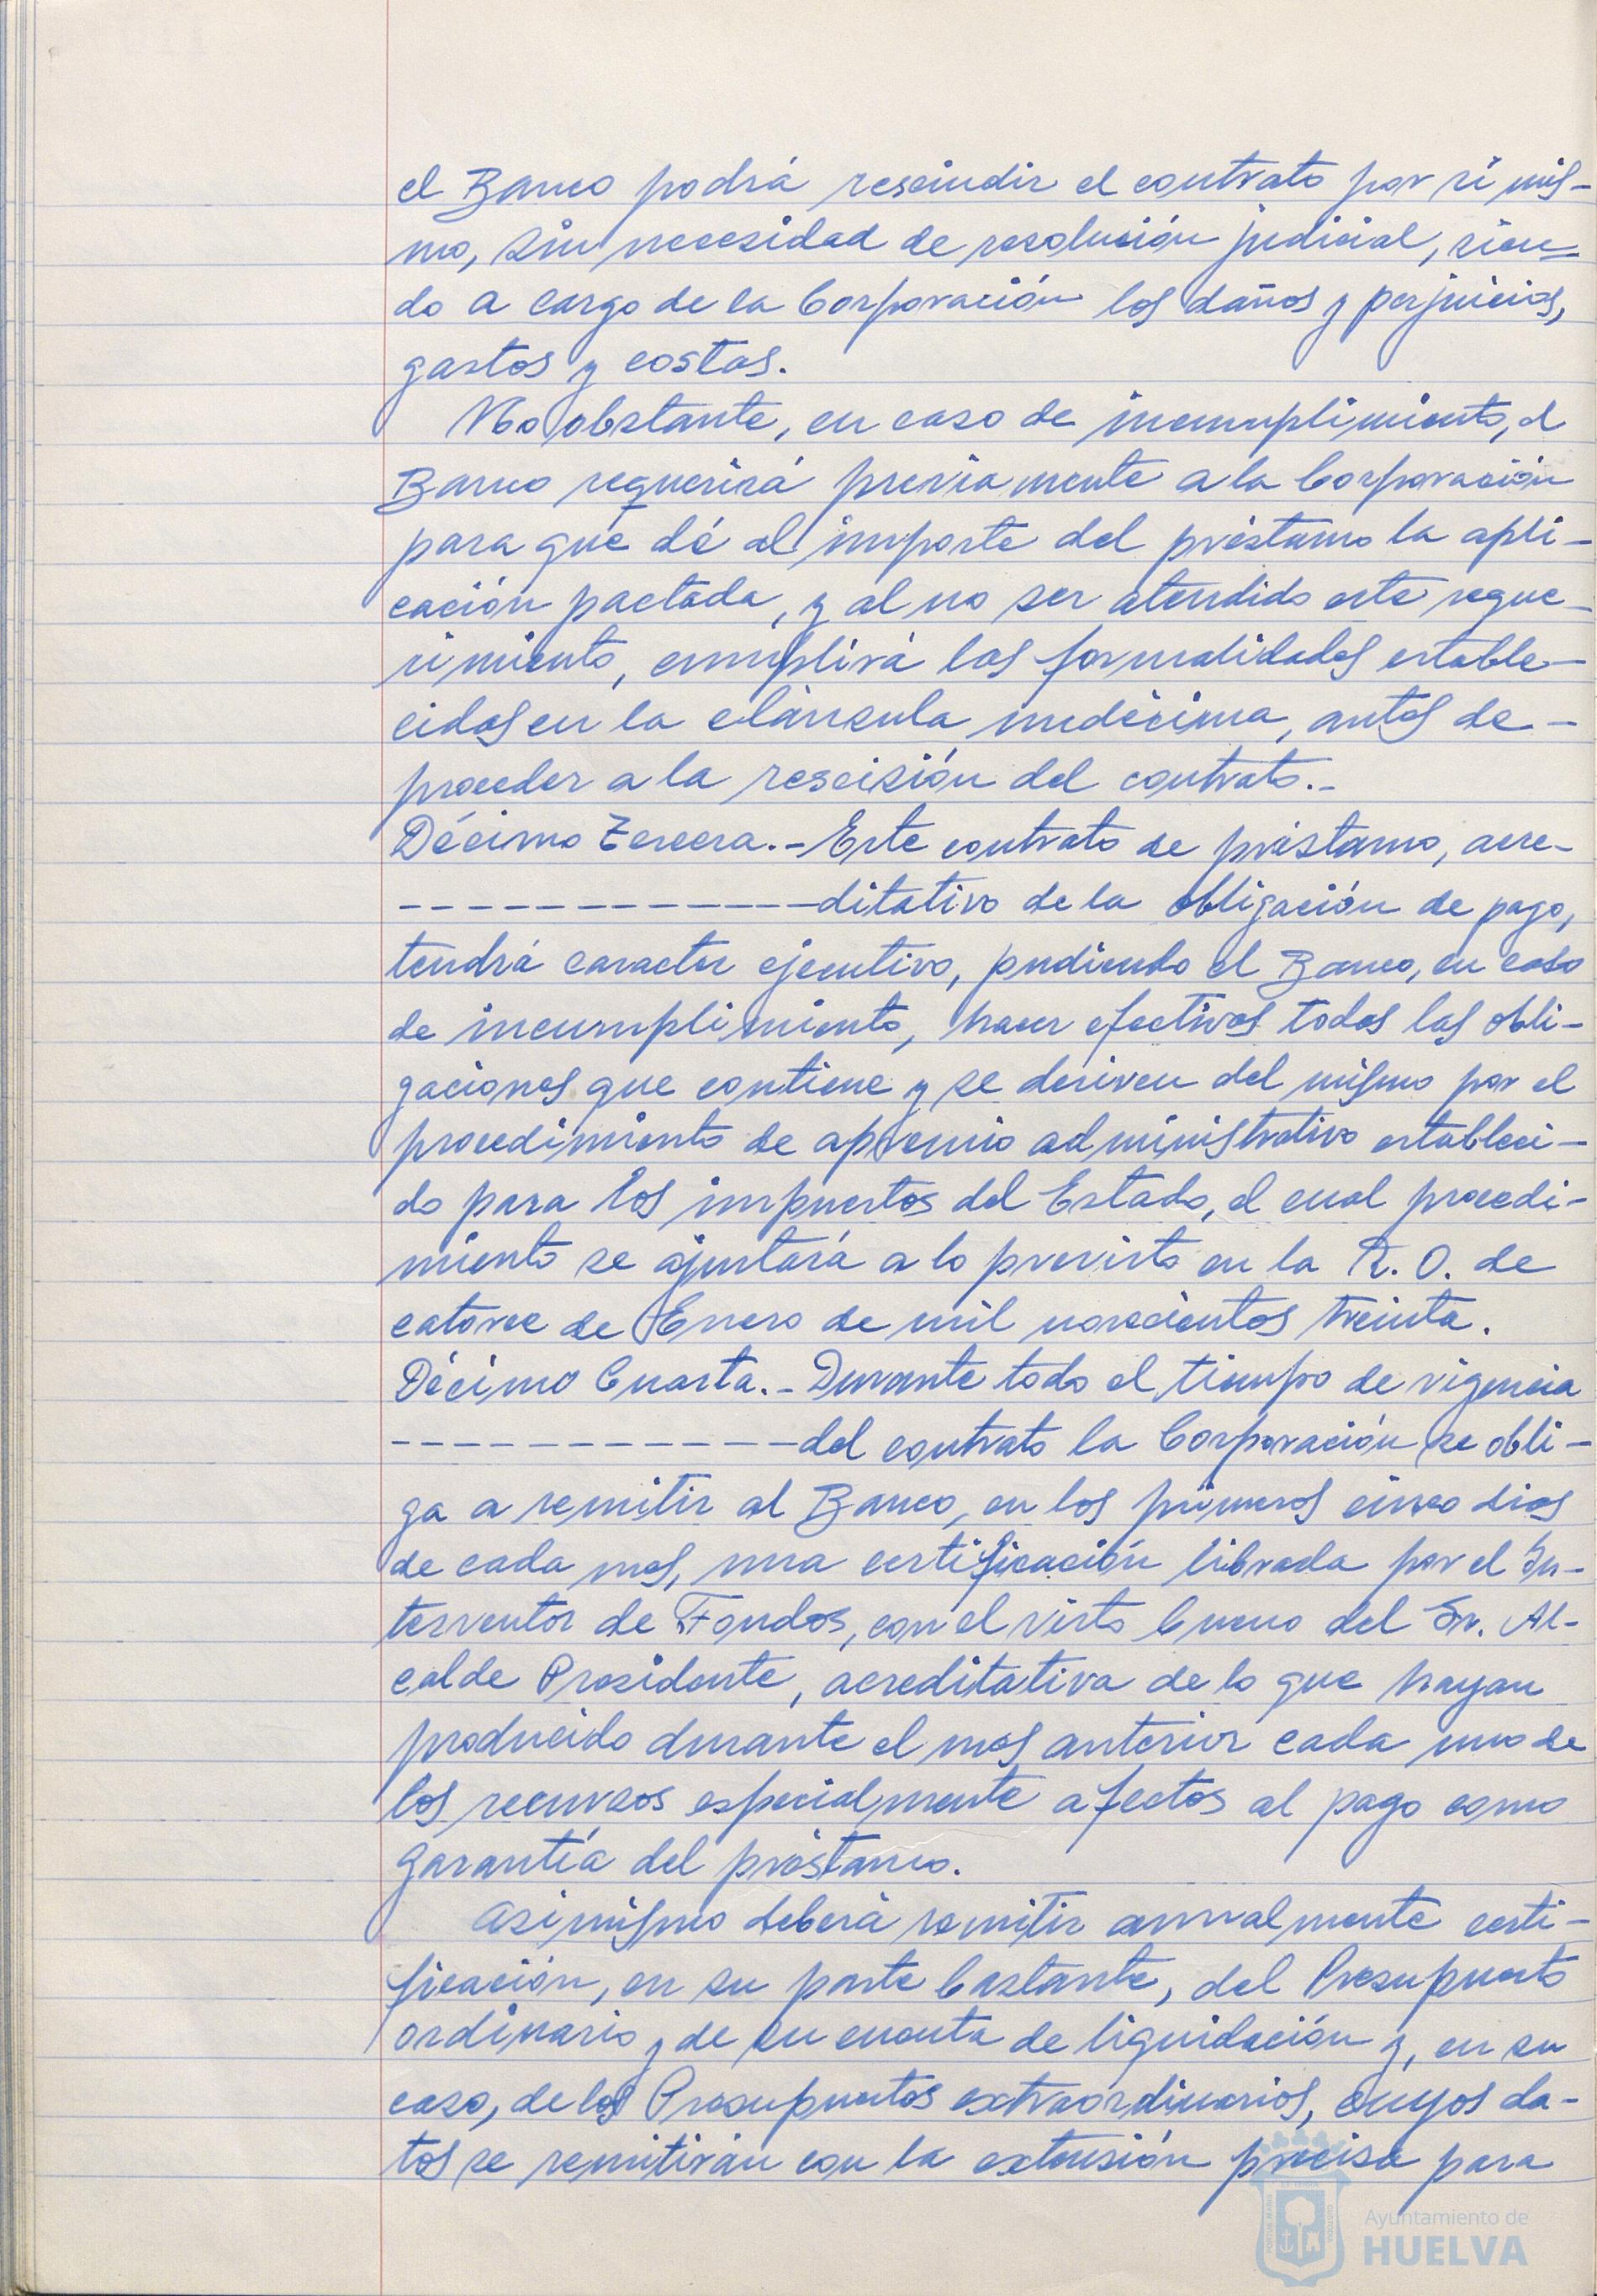 el Banco podrá rescindir el contrato por sí mis-
mo, sin necesidad de resolución judicial, sien-
do a cargo de la Corporación los daños y perjuicios,
gastos y costas.
No obstante, en caso de incumplimiento, el
Banco requerirá previamente a la Corporación
para que dé al importe del préstamo la apli-
cación pactada, y al no ser atendido este reque-
rimiento, cumplirá las formalidades estable-
cidas en la cláusula undécima, antes de -
proceder a la rescisión del contrato.-
Décimo Tercera.- Este contrato de préstamo, acre-
------------ditativo de la obligación de pago,
tendrá caracter ejecutivo, pudiendo el Banco, en caso
de incumplimiento, hacer efectivas todas las obli-
gaciones que contiene y se deriven del mismo por el
procedimiento de apremio administrativo estableci-
do para los impuestos del Estado, el cual procedi-
miento se ajustará a lo previsto en la R. O. de
catorce de Enero de mil novecientos treinta.
Décimo Cuarta.- Durante todo el tiempo de vigencia
------------del contrato la Corporación se obli-
ga a remitir al Banco, en los primeros cinco dias
de cada mes, una certificación librada por el In-
terventor de Fondos, con el visto bueno del Sr. Al-
calde Presidente, acreditativa de lo que hayan
producido durante el mes anterior cada uno de
los recursos especialmente afectos al pago como
garantía del préstamo.
Asimismo deberá remitir anualmente certi-
ficación, en su parte bastante, del Presupuesto
ordinario y de su cuenta de liquidación y, en su
caso, de los Presupuestos extraordinarios, cuyos da-
tos se remitirán con la extensión precisa para
Ayuntamiento de
HUELVA